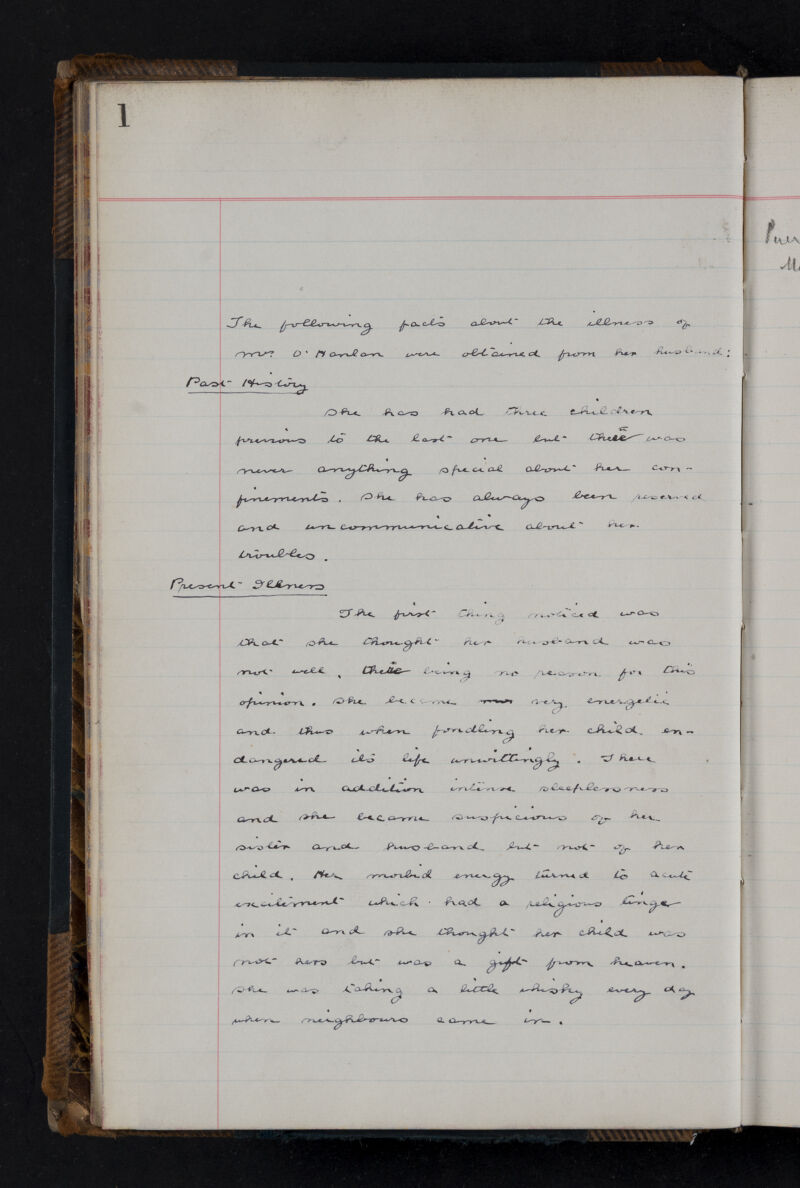 1
The following facts about the illness of
Mrs. O'Hanlan were obtained from her husband:
Past History
She has had three children
previous to the last one but there was
never anything special about her con-
finements. She has always been reserved
and uncommunicative about her
troubles.
Present Illness
The first thing noticed was
that she thought her husband was
not well, there being no reason for this
opinion. She became very energetic
and thus when fondling her child en-
dangered its life unwittingly. There
was in addition intense sleeplessness
and she became suspicious of her
sister and husband but not of her
child. Her morbid energy turned to acute
excitement which had a religious tinge
in it and she thought her child was
not hers but was a gift from heaven.
She was taking a little whisky every day
when neighbours came in.